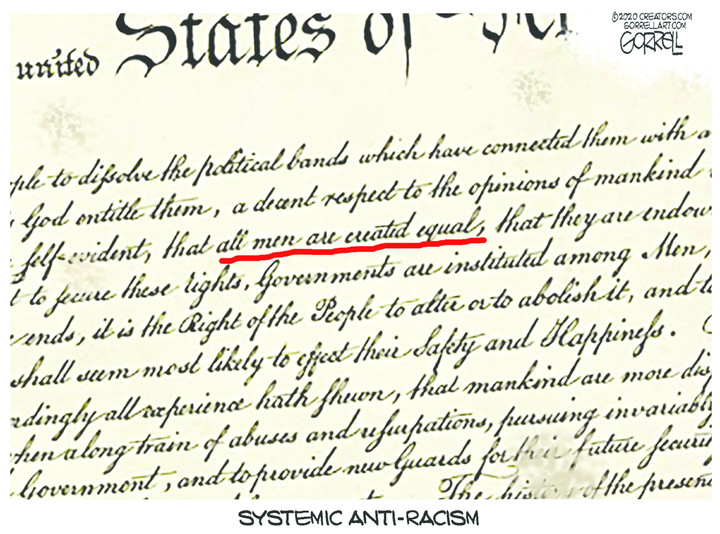 ©2020 CREATORS.COM
GORRELLART.COM
GORRELL
united States of
ple to dissolve the political bands which have connected them with a
God entitle them, a decent respect to the opinions of mankind
self-evident, that all men are created equal, that they are endow
t to secure these rights, Governments are instituted among Men,
ends, it is the Right of the People to alter or to abolish it, and to
shall seem most likely to effect their Safety and Happiness.
rdingly all experience hath shewn, that mankind are more disp
hen a long train of abuses and usurpations, pursuing invariably
Government, and to provide new Guards for their future securi
The history of the presen
SYSTEMIC ANTI-RACISM